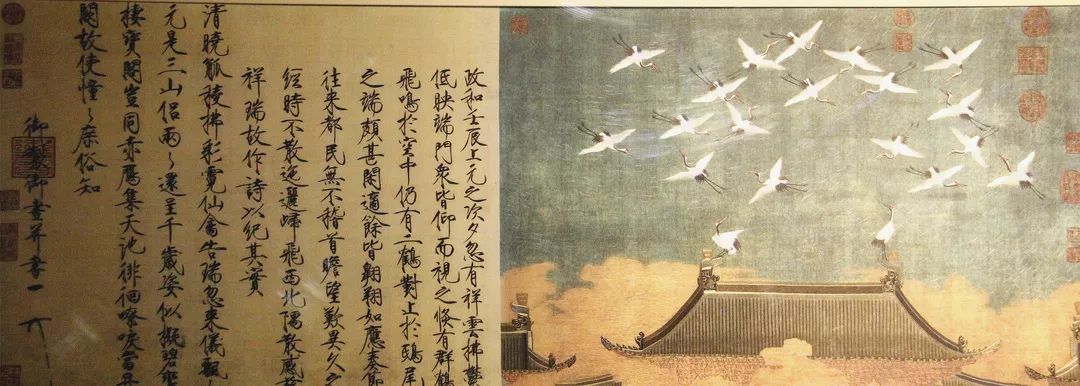 政和壬辰上元之次夕忽有祥雲拂鬱
低映端門衆皆仰而視之倏有群鶴
飛鳴於空中仍有二鶴對止於鴟尾
之端頗甚閑適餘皆翱翔如應奏節
往来都民無不稽首瞻望歎異久之
經時不散迤邐歸飛西北隅散感
祥瑞故作詩以紀其實
清曉觚稜拂彩霓仙禽告瑞忽来儀飄
元是三山侶兩〻還呈千歲姿似擬碧鸞
棲寶閣豈同赤鴈集天池徘徊嘹唳當
闕故使憧〻庶俗知
御製御畫并書